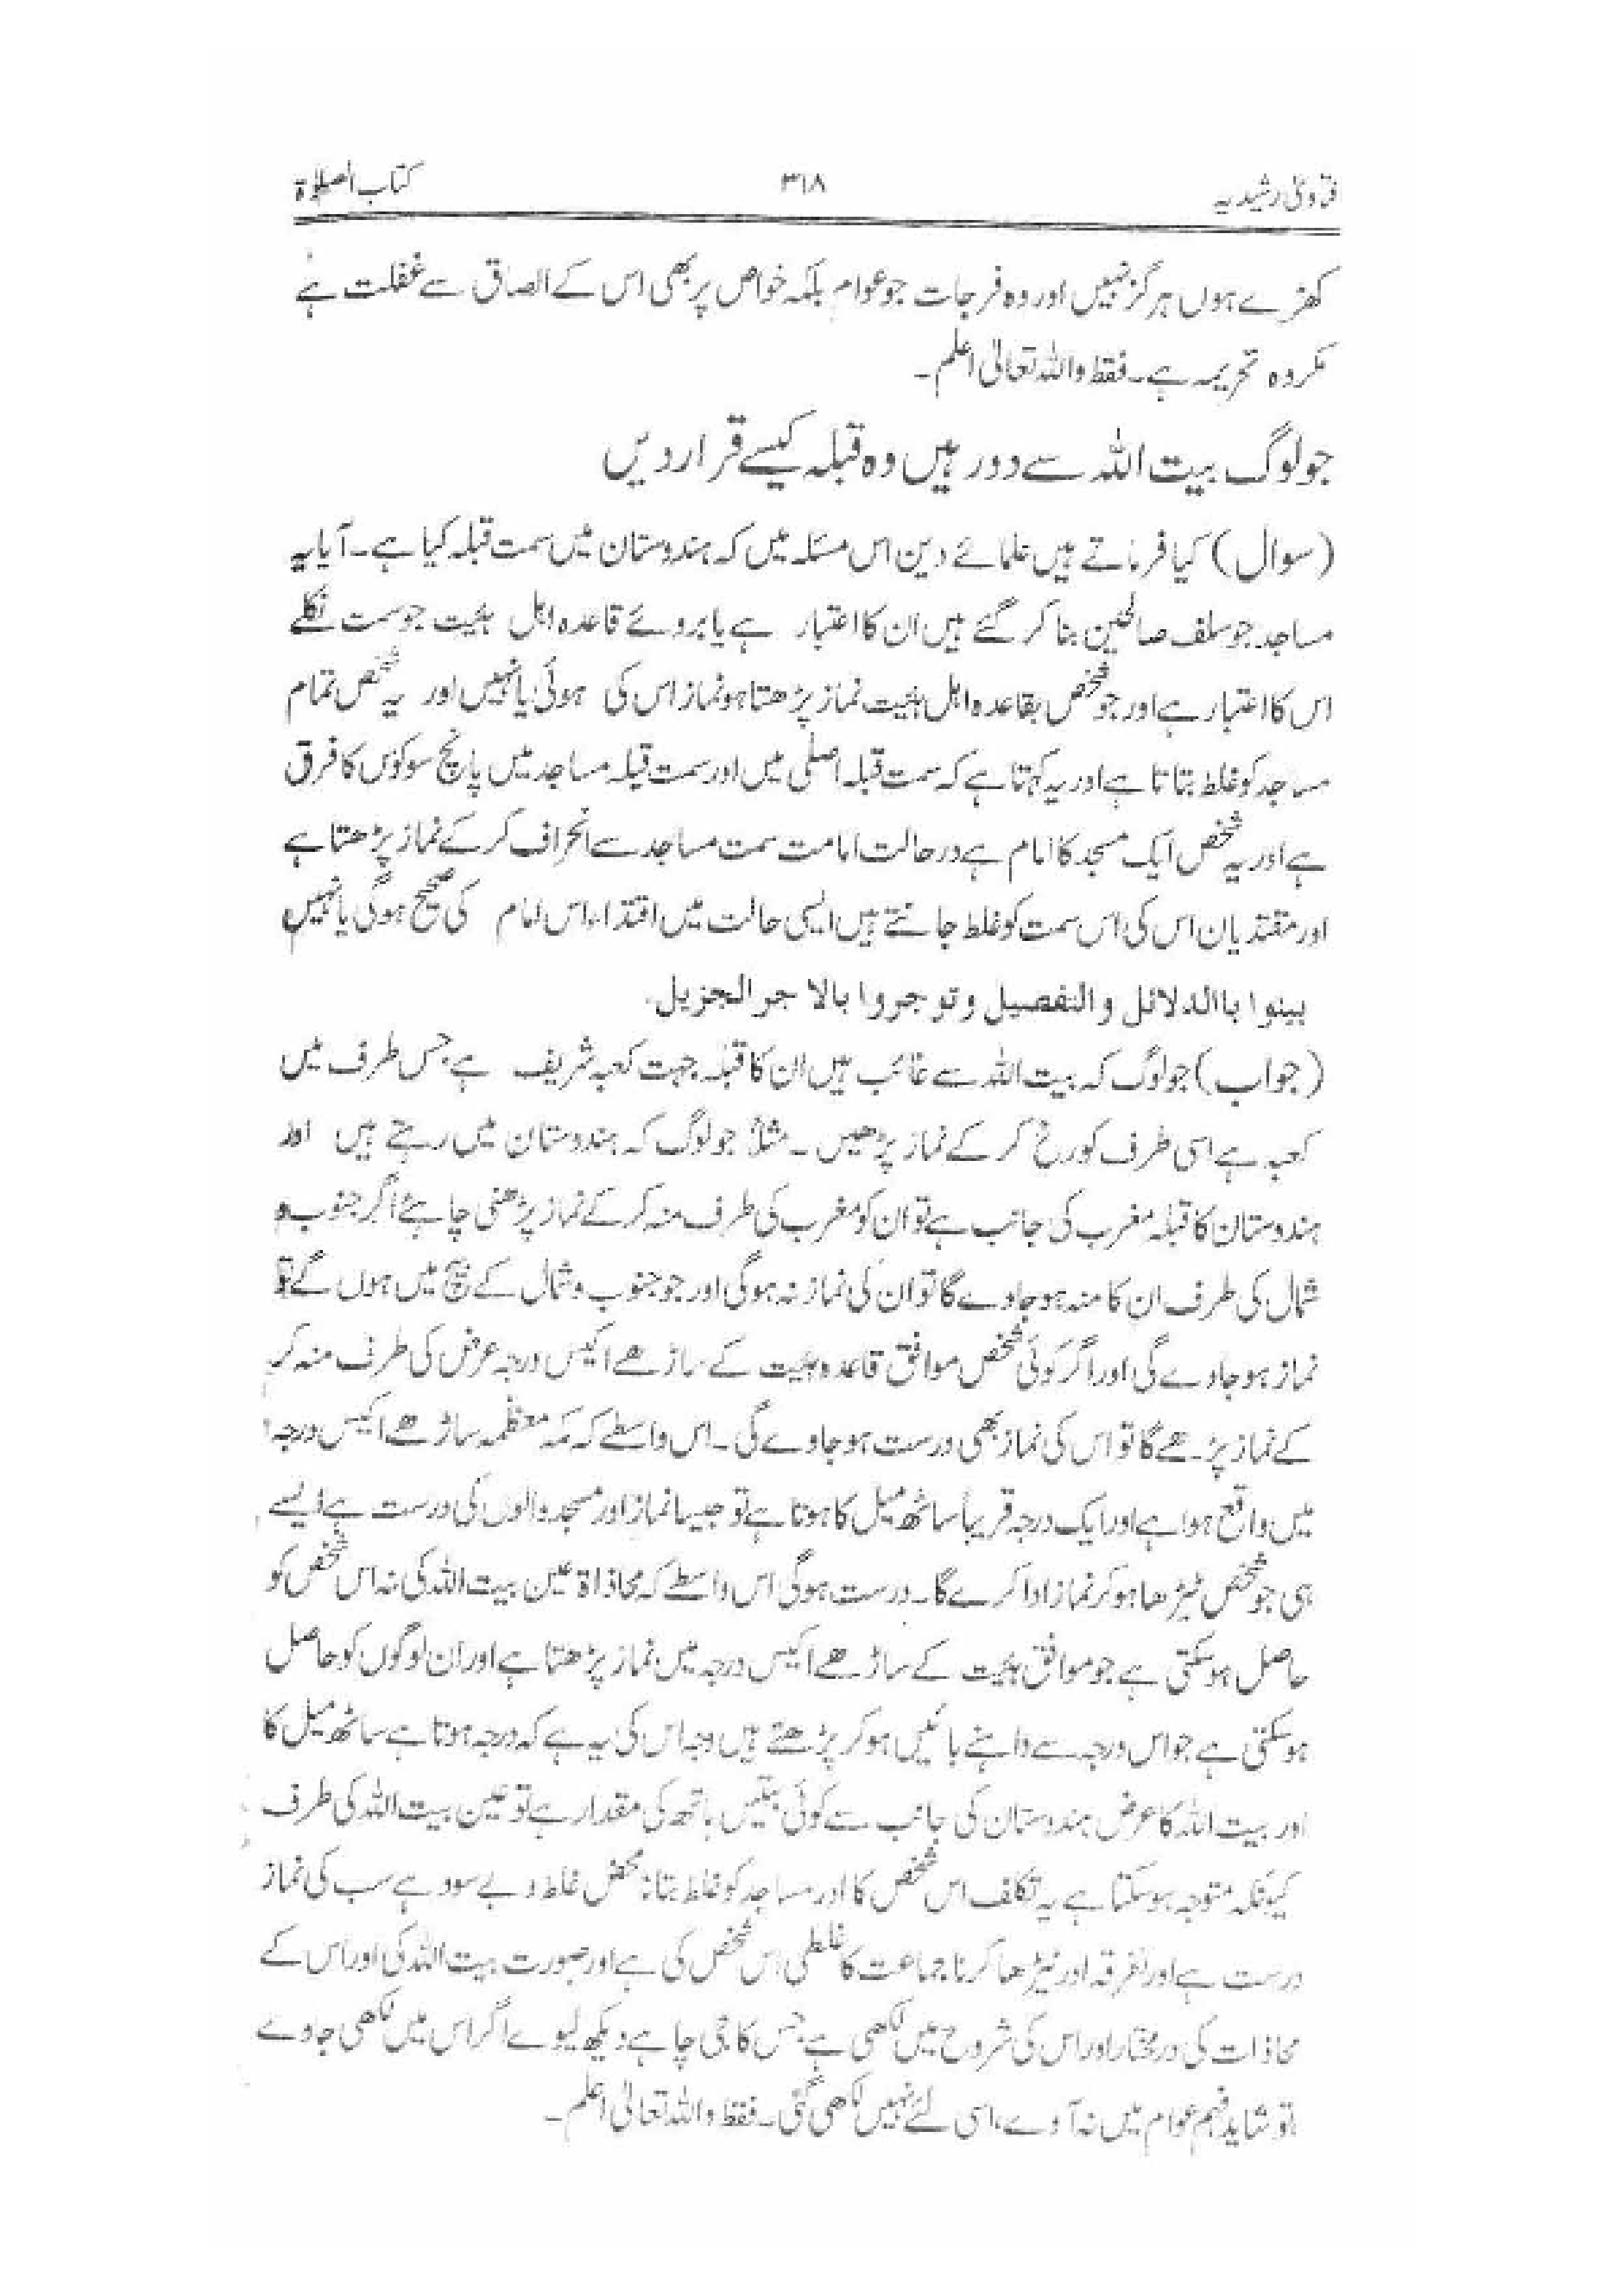 فتاویٰ رشیدیہ ۳۱۸ کتاب الصلوٰۃ
کھڑے ہوں ہرگز نہیں اور وہ فرجات جو عوام بلکہ خواص پر بھی اس کے الصاق سے غفلت ہے
مکروہ تحریمہ ہے۔ فقط واللہ تعالیٰ اعلم۔
جو لوگ بیت اللہ سے دور ہیں وہ قبلہ کیسے قرار دیں
(سوال) کیا فرماتے ہیں علمائے دین اس مسئلہ میں کہ ہندوستان میں سمت قبلہ کیا ہے۔ آیا یہ
مساجد جو سلف صالحین بنا کر گئے ہیں ان کا اعتبار ہے یا بروئے قاعدہ اہل ہئیت جو سمت نکلے
اس کا اعتبار ہے اور جو شخص بقاعدہ اہل ہئیت نماز پڑھتا ہو نماز اس کی ہوئی یا نہیں اور یہ شخص تمام
مساجد کو غلط بتاتا ہے اور یہ کہتا ہے کہ سمت قبلہ اصلی میں اور سمت قبلہ مساجد میں پانچ سو کوس کا فرق
ہے اور یہ شخص ایک مسجد کا امام ہے در حالت امامت سمت مساجد سے انحراف کر کے نماز پڑھتا ہے
اور مقتدیان اس کی اس سمت کو غلط جانتے ہیں ایسی حالت میں اقتداء اس امام کی صحیح ہوگی یا نہیں
بینوا باالدلائل والتفصیل وتوجروا بالا جر الجزیل.
(جواب) جو لوگ کہ بیت اللہ سے غائب ہیں ان کا قبلہ جہت کعبہ شریف ہے جس طرف میں
کعبہ ہے اسی طرف کو رخ کر کے نماز پڑھیں۔ مثلاً جو لوگ کہ ہندوستان میں رہتے ہیں اور
ہندوستان کا قبلہ مغرب کی جانب ہے تو ان کو مغرب کی طرف منہ کر کے نماز پڑھنی چاہئے اگر جنوب و
شمال کی طرف ان کا منہ ہو جاوے گا تو ان کی نماز نہ ہوگی اور جو جنوب و شمال کے بیچ میں ہوں گے تو
نماز ہو جاوے گی اور اگر کوئی شخص موافق قاعدہ ہئیت کے ساڑھے اکیس درجہ عرض کی طرف منہ کر
کے نماز پڑھے گا تو اس کی نماز بھی درست ہو جاوے گی۔ اس واسطے کہ مکہ معظمہ ساڑھے اکیس درجہ
میں واقع ہوا ہے اور ایک درجہ قریباً ساٹھ میل کا ہوتا ہے تو جیسا نماز اور مسجد والوں کی درست ہے ایسے
ہی جو شخص ٹیڑھا ہو کر نماز ادا کرے گا۔ درست ہوگی اس واسطے کہ محاذاۃ عین بیت اللہ کی نہ اس شخص کو
حاصل ہوسکتی ہے جو موافق ہئیت کے ساڑھے اکیس درجہ میں نماز پڑھتا ہے اور ان لوگوں کو حاصل
ہوسکتی ہے جو اس درجہ سے داہنے بائیں ہو کر پڑھتے ہیں وجہ اس کی یہ ہے کہ درجہ ہوتا ہے ساٹھ میل کا
اور بیت اللہ کا عرض ہندوستان کی جانب سے کوئی ہاتھ کی مقدار ہے تو عین بیت اللہ کی طرف
کیونکہ متوجہ ہوسکتا ہے یہ تکلف اس شخص کا اور مساجد کو غلط بتانا محض غلط و بے سود ہے سب کی نماز
درست ہے اور تفرقہ اور ٹیڑھا کرنا جماعت کا غلطی اس شخص کی ہے اور صورت بیت اللہ کی اور اس کے
محاذات کی درمختار اور اس کی شروح میں لکھی ہے جس کا جی چاہے دیکھ لیوے اگر اس میں لکھی جاوے
تو شاید فہم عوام میں نہ آوے، اسی لئے نہیں لکھی گئی۔ فقط واللہ تعالیٰ اعلم۔